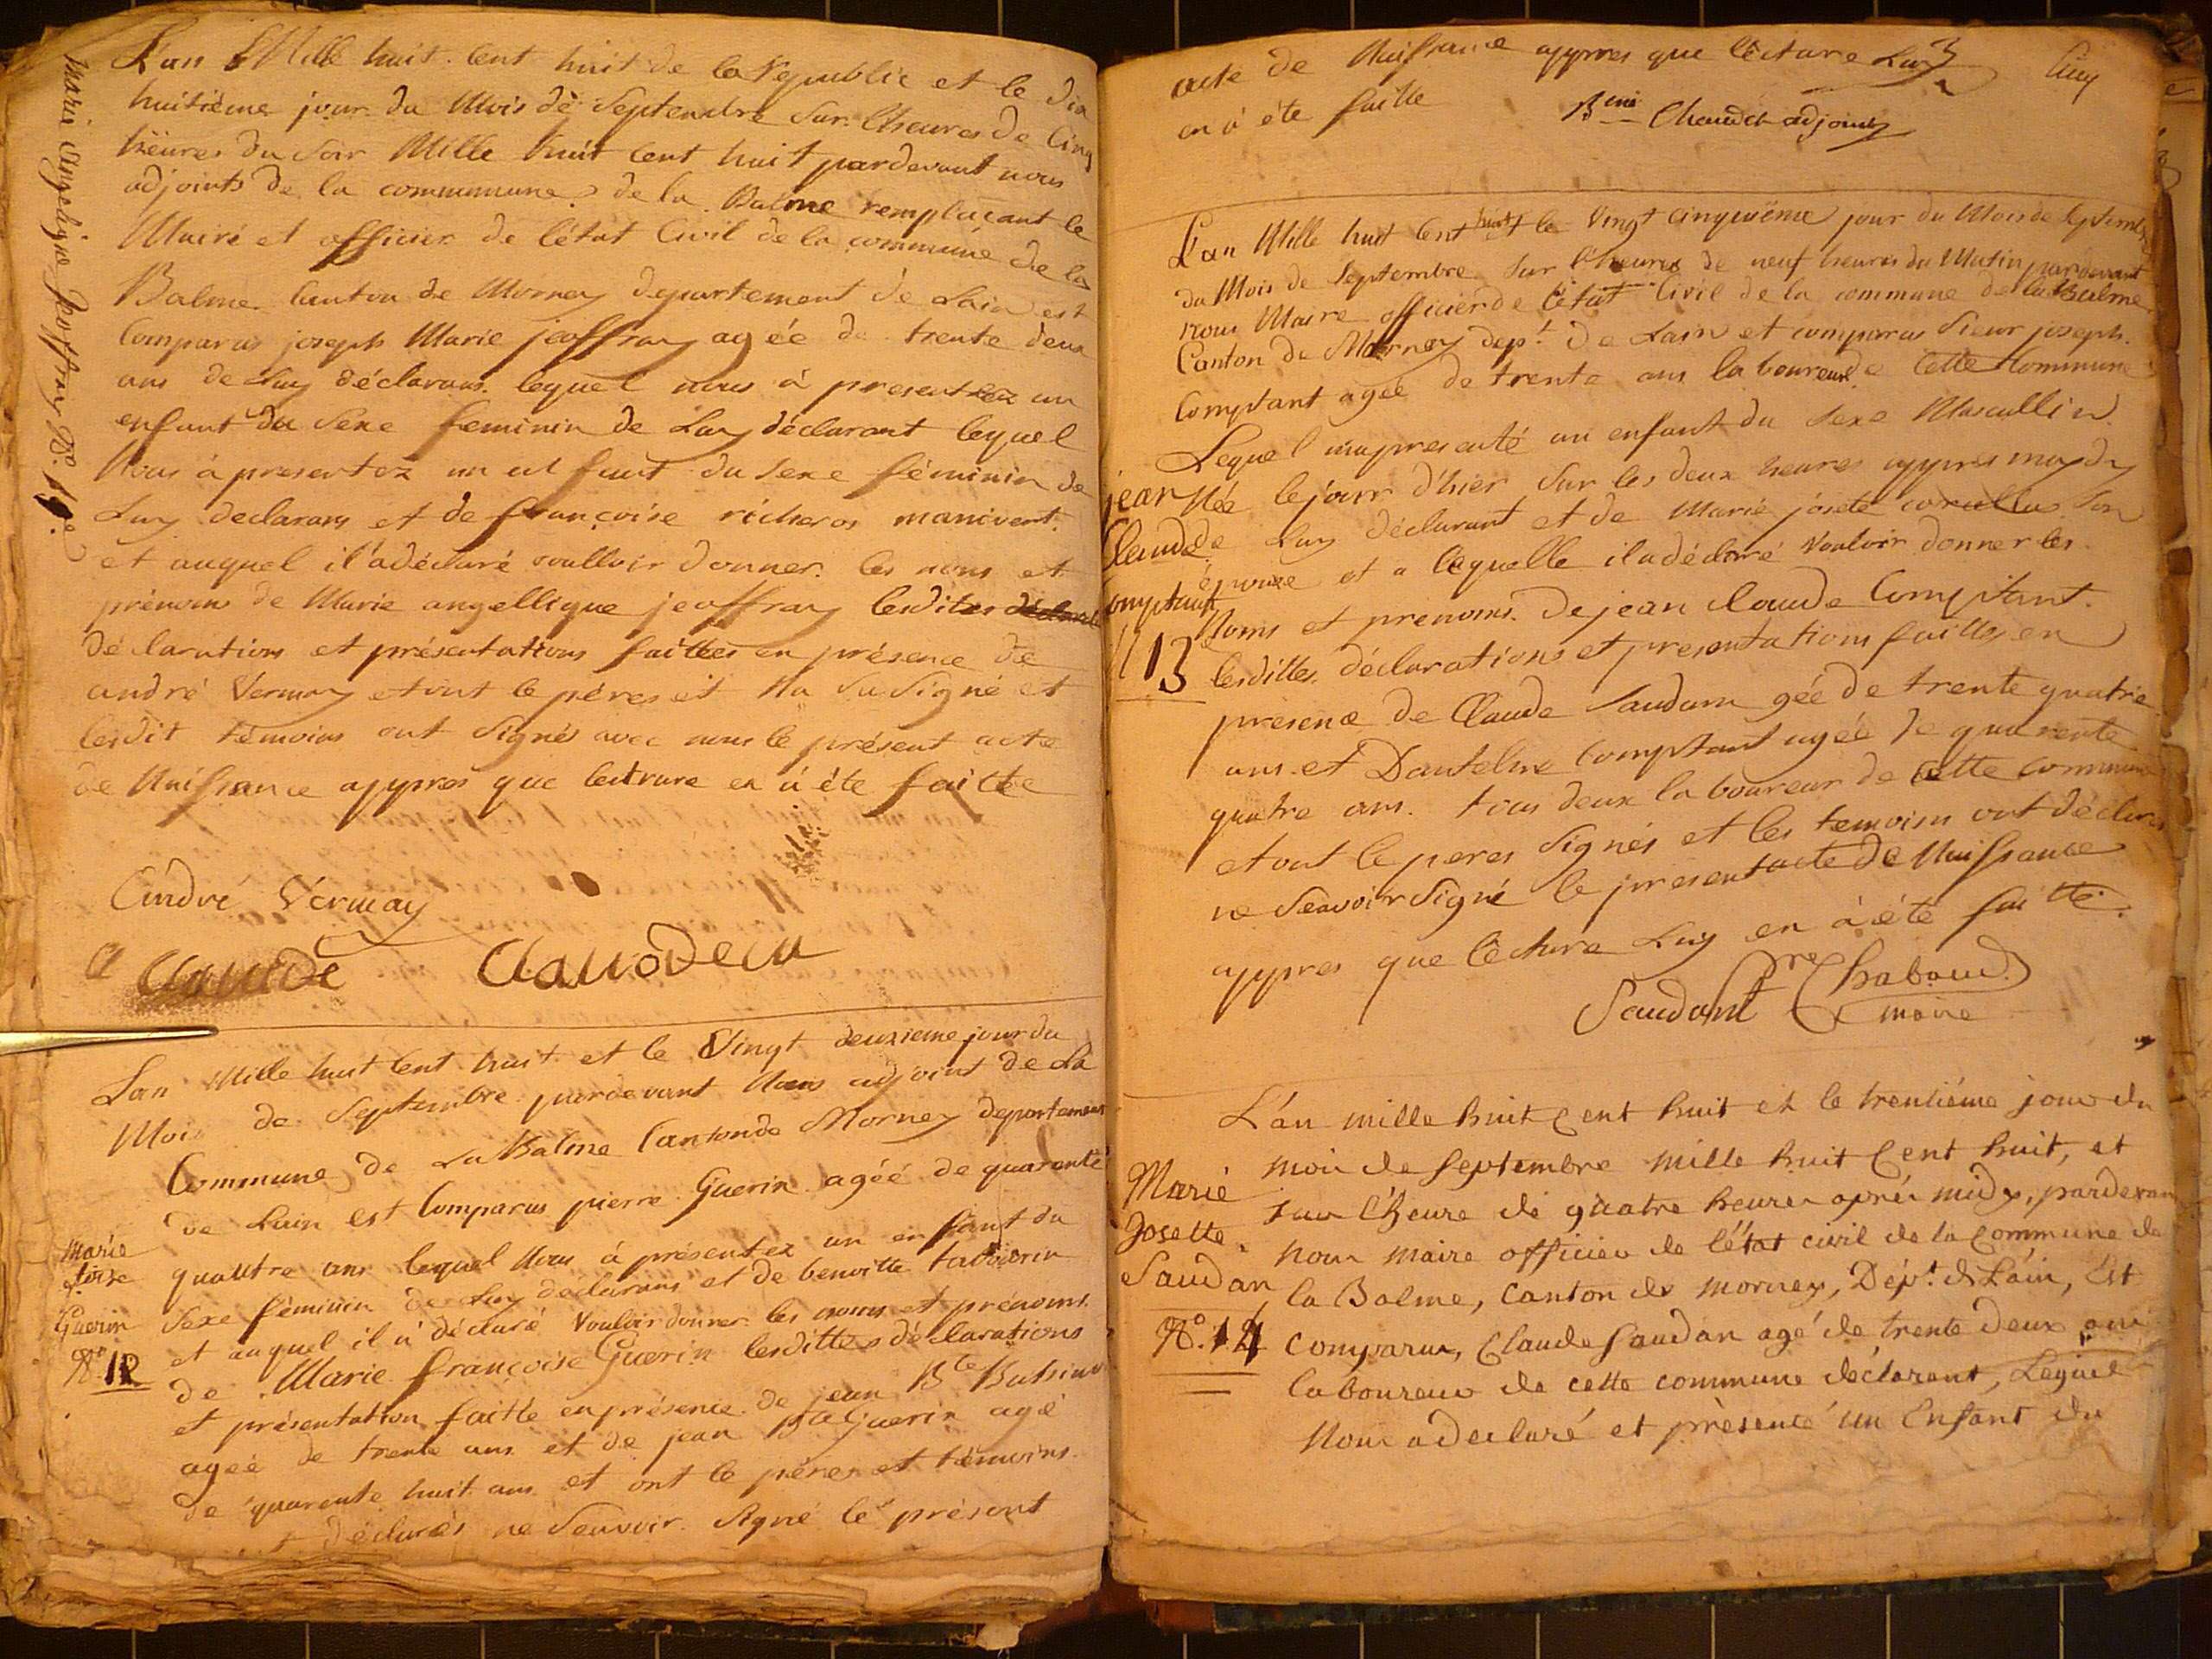 Marie Angelique Jeoffray N°. 11e
L'an Mille huit Cent huit de la Republic et le dix
huitième jour du Mois de Septembre Sur l'heures de Cinq
hëures du Soir Mille huit Cent huit pardevant nous
adjoints de la commmune de la Balme remplacant le
Maire et officier de l'état Civil de la commune de la
Balme Canton de Mornay departement de Lain est
Comparus joseph Marie jeoffray agée de trente deux
ans de Luy déclarans lequel nous à presentez un
enfant du Sexe feminin de Luy déclarant lequel
Nous à presentez un enfant du Sexe féminin de
Luy declarans et de françoise richeros manivent
et auquel il a déclaré voulloir donner les noms et
prénoms de Marie angellique jeoffray lesdites
déclarations et présentations faittes en présence de
andré Vermay etont le péres et Na Su Signé et
lesdit témoins ont Signés avec nous le présent acte
de Naissance appres que lecture en à éte faitte
André Vermay
Claude
L'an Mille huit Cent huit et le Vingt deuxieme jour du
Mois de Septembre pardevant Nous adjoint de La
Commune de La Balme Canton de Mornay departement
de Lain est Comparus pierre Guerin agéé de quarente
quattre ans lequel Nous à présentez un enfant du
Sexe féminin de Luy déclarans et de benoitte
et auquel il a déclaré Vouloir donner les noms et prénoms
de Marie françoise Guerin lesdittes déclarations
et présentation faitte en présence de jean Bte
ageé de trente ans et de jean Bte Guerin agé
de quarente huit ans et ont le péres et témoins
déclarés ne Seavoir Signé le présent
Marie
Guerin
N° 12
acte de Naissance appres que lecture Luy
en à éte faitte
Luy
Chaudet adjoint
L'an Mille huit Cent huit le Vingt cinquième jour du Mois de Septembre
du Mois de Septembre Sur l'heures de neuf heures du Matin pardevant
nous Maire officier de l'état Civil de la commune de la Balme
Canton de Mornay dept. de Lain et comparus Sieur joseph
Comptant agée de trente ans laboureur de Cette Commune
Lequel mapresenté un enfant du Sexe Mascullin
Née lejour d'hier Sur les deux heures appres maydy
de Luy déclarant et de Marie josete Son
épouse et a laquelle iladéclaré Vouloir donner les
Noms et prenoms de jean Claude Comptant
lesdittes déclarations et presentations faittes en
presence de Claude Saudan gée de trente quatre
ans et Dantelme Comptant agée de quarente
quatre ans tous deux laboureur de Cette Commune
etont le peres Signés et les temoins ont déclarés
ne Seavoir Signé le present acte de Naissance
appres que lecture Luy en à éte faitte.
jean
Claude
Comptant
N 13
Saudant Pre Chabaud
maire
L'an mille huit Cent huit et le trentiéme jour du
mois de Septembre mille huit Cent huit, et
sur l'heure de quatre heures aprés midy, pardevant
nous maire officier de l'état civil de la Commune de
la Balme, Canton de mornay, Dépt. de L'ain, Est
Comparu, Claude Saudan agé de trente deux ans
laboureur de cette commune déclarant, Lequel
Nous a declaré et présenté un Enfant du
Marie
Josette
Saudan
N°. 14